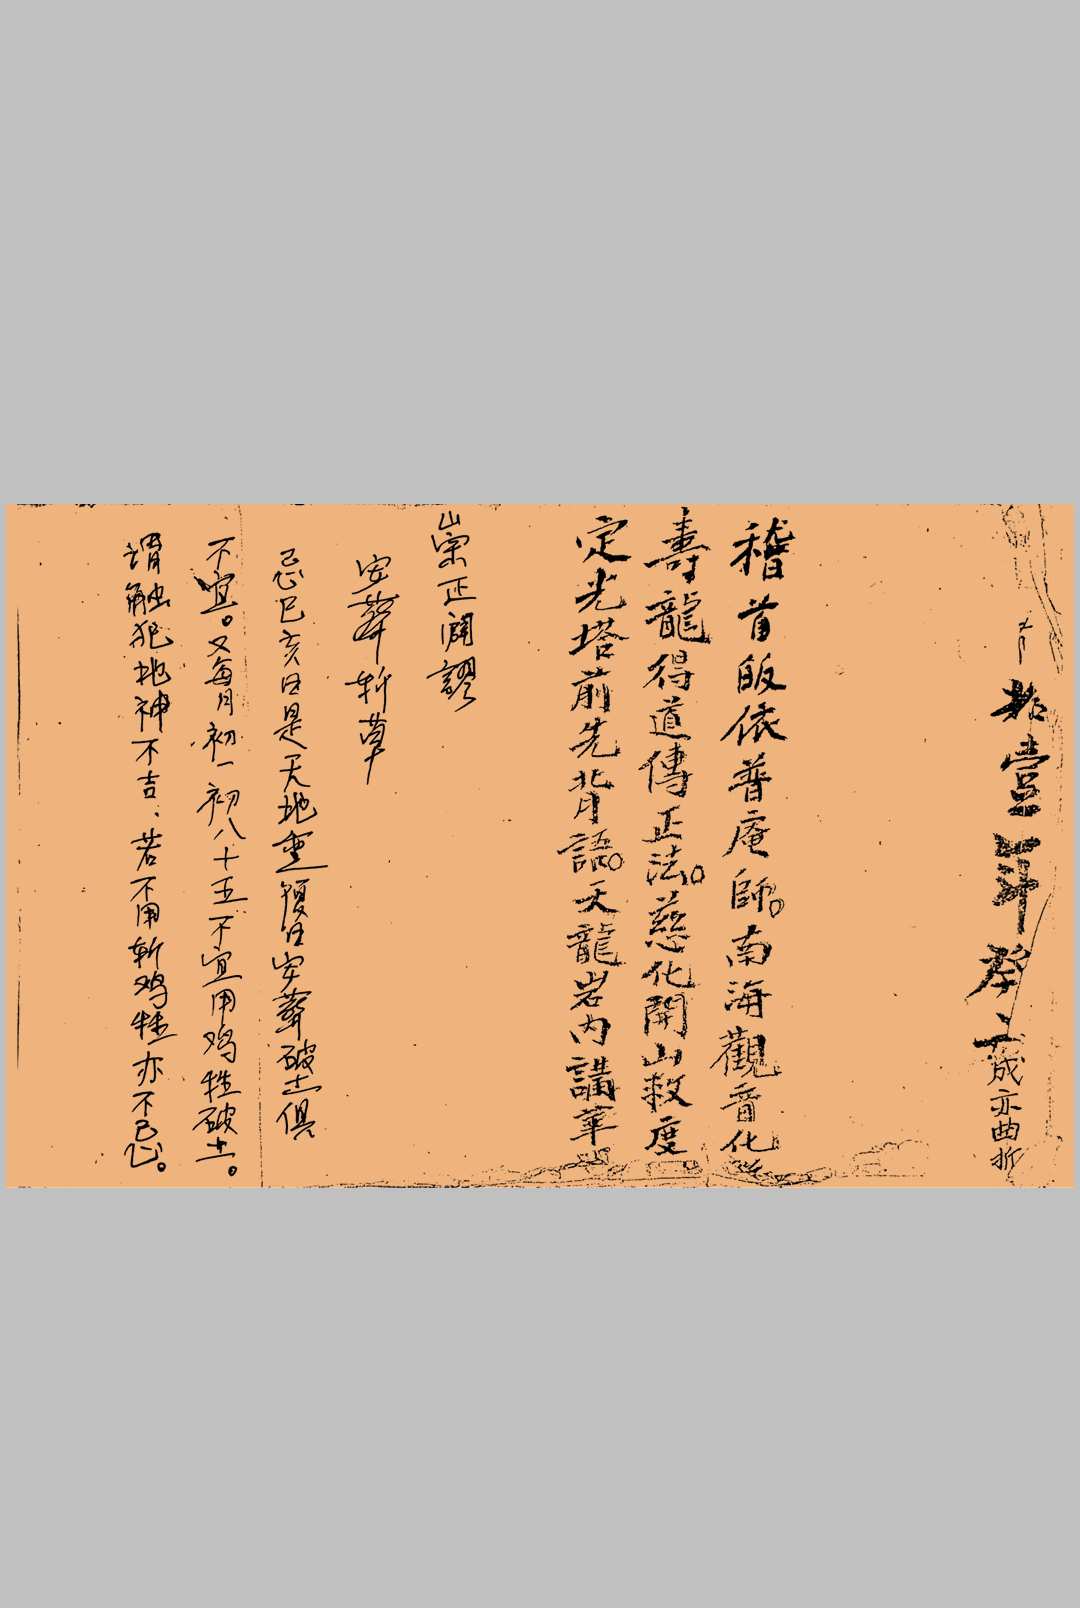 拾壹年癸
成亦曲折
稽首皈依普庵師。南海觀音化
壽龍得道傳正法。慈化開山救度
定光塔前先背語。天龍岩内講華
崇正闢謬
安葬斬草
忌巳亥日是天地重複日安葬破土俱
不宜。又每月初一初八十五不宜用鸡牲破土。
謂触犯地神不吉、若不用斬鸡牲亦不忌。